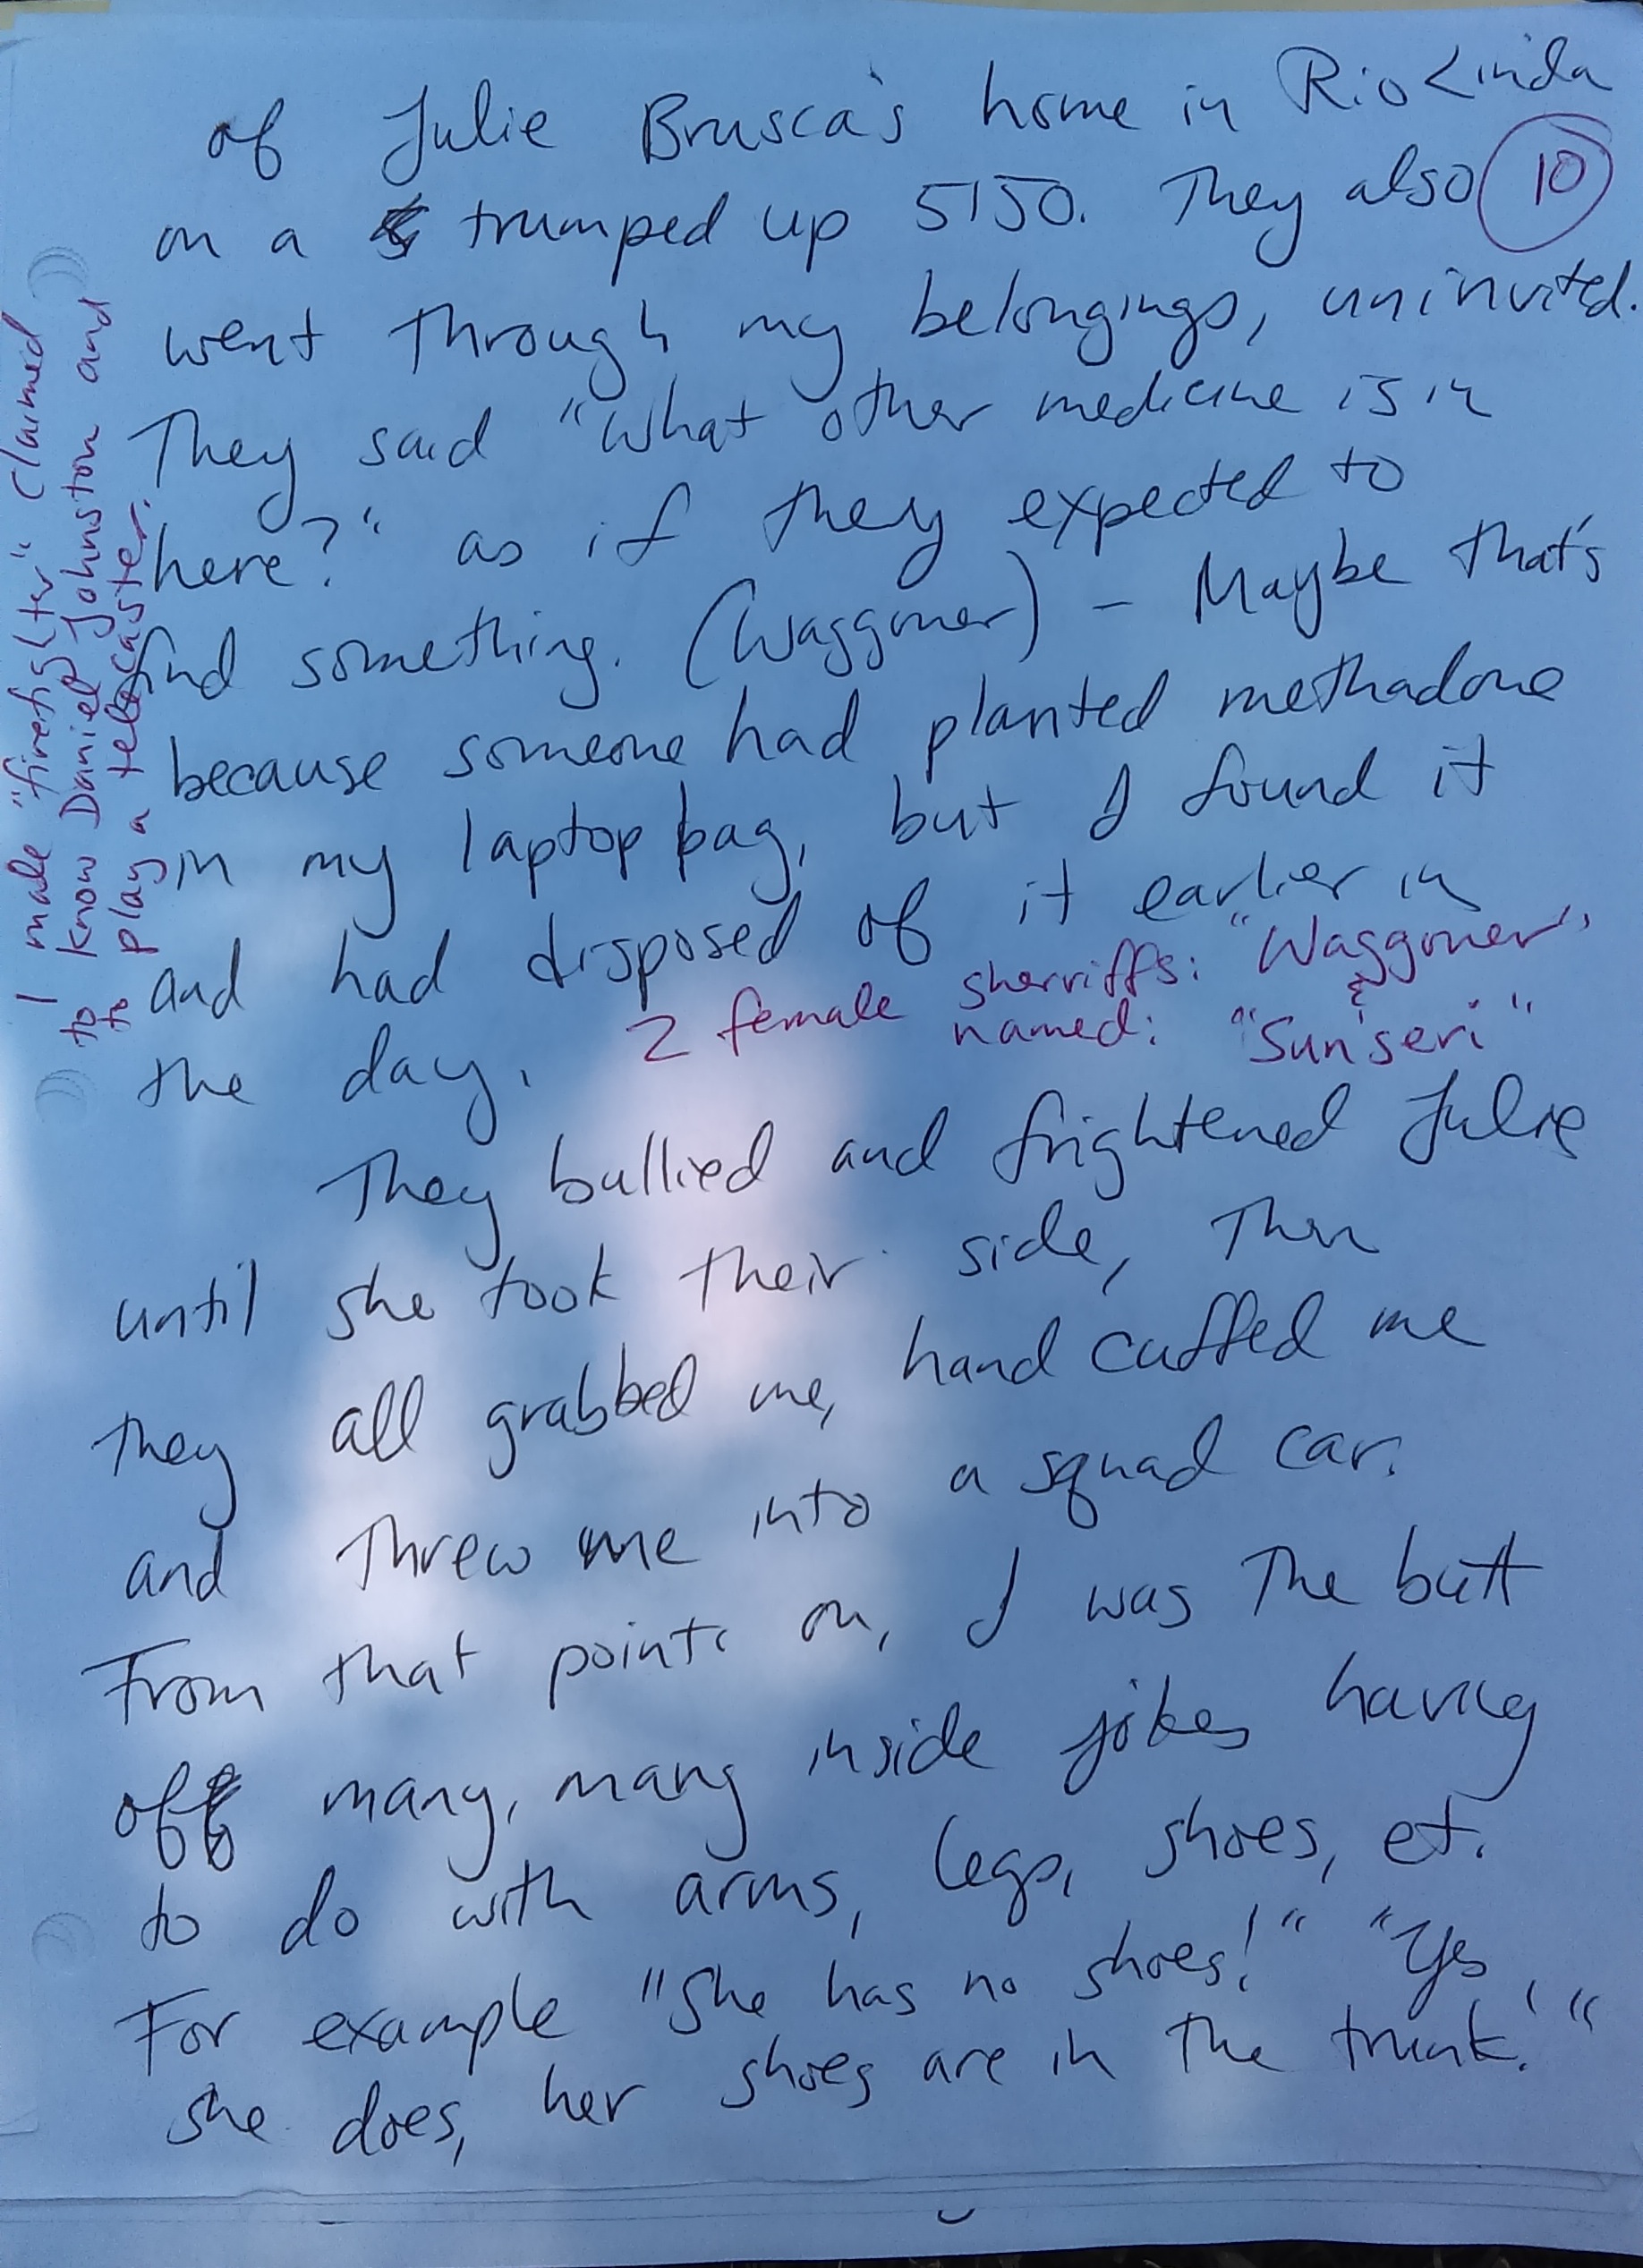 of Julie Brusca's home in Rio Linda
10
on a trumped up 5150. They also
went through my belongings, uninvited.
They said "What other medicine is in
here?" as if they expected to
find something. (Waggoner) - Maybe that's
because someone had planted methadone
in my laptop bag, but I found it
and had disposed of it earlier in
the day.
2 female sherriffs: "Waggoner"
named: & "Sunseri"
They bullied and frightened Julie
until she took their side, Then
they all grabbed me, hand cuffed me
and threw me into a squad car.
From that point on, I was the butt
of many, many inside jokes having
to do with arms, legs, shoes, et.
For example "She has no shoes!" "Yes,
she does, her shoes are in the trunk!"
1 male "firefighter" claimed
to know Daniel Johnston and
to play a telecaster.